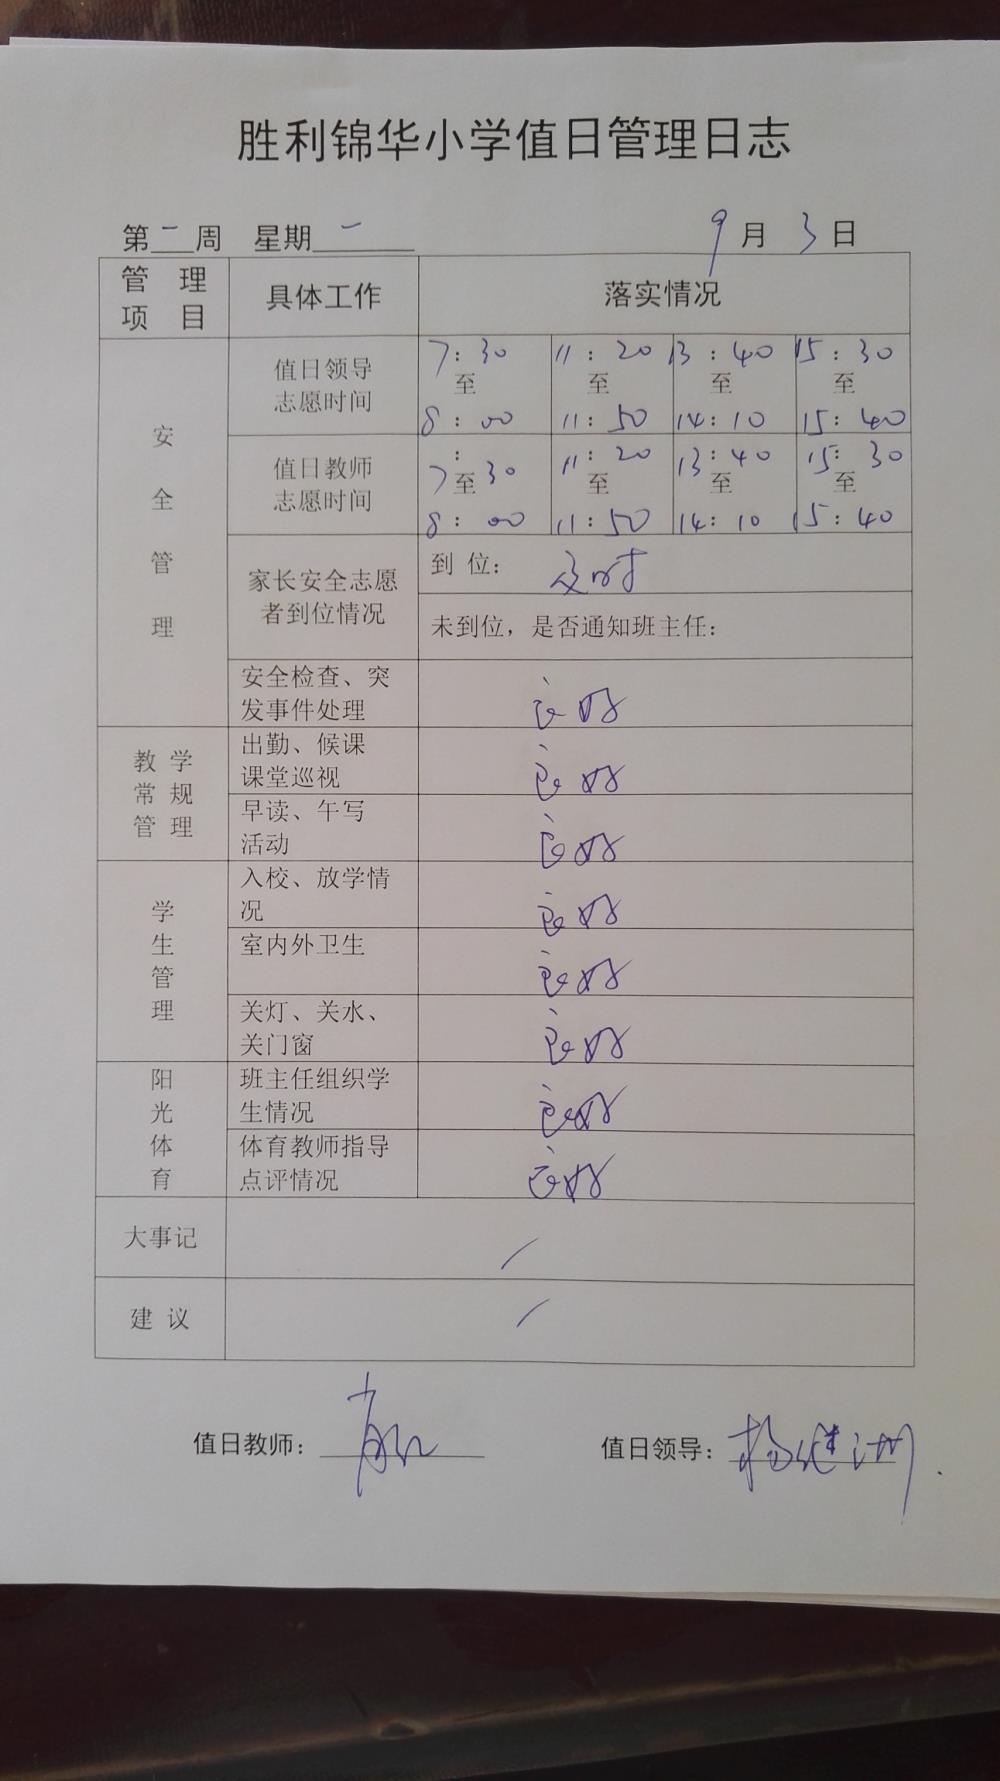 胜利锦华小学值日管理日志
第一周 星期一 9月3日
管理项目 具体工作 落实情况
安全管理
值日领导志愿时间 7:30至8:00 11:20至11:50 13:40至14:10 15:30至15:40
值日教师志愿时间 7:30至8:00 11:20至11:50 13:40至14:10 15:30至15:40
家长安全志愿者到位情况 到位：及时
未到位，是否通知班主任：
安全检查、突发事件处理 良好
教学常规管理
出勤、候课课堂巡视 良好
早读、午写活动 良好
学生管理
入校、放学情况 良好
室内外卫生 良好
关灯、关水、关门窗 良好
阳光体育
班主任组织学生情况 良好
体育教师指导点评情况 良好
大事记 /
建议 /
值日教师： 值日领导：杨继洲